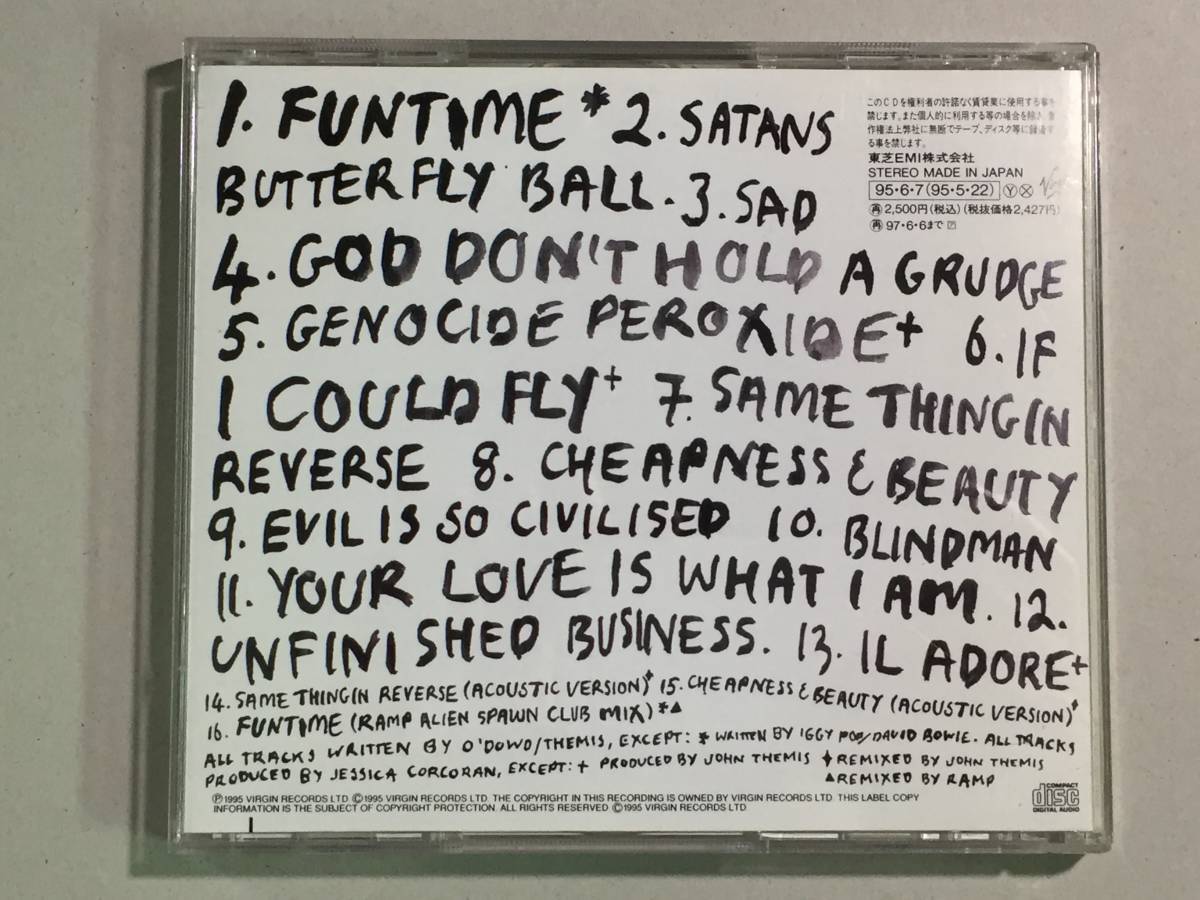 1. FUNTIME * 2. SATANS
BUTTERFLY BALL. 3. SAD
4. GOD DON'T HOLD A GRUDGE
5. GENOCIDE PEROXIDE+ 6. IF
I COULD FLY+ 7. SAME THING IN
REVERSE 8. CHEAPNESS & BEAUTY
9. EVIL IS SO CIVILISED 10. BLINDMAN
11. YOUR LOVE IS WHAT I AM. 12.
UNFINISHED BUSINESS. 13. IL ADORE+
14. SAME THING IN REVERSE (ACOUSTIC VERSION)♦ 15. CHEAPNESS & BEAUTY (ACOUSTIC VERSION)♦
16. FUNTIME (RAMP ALIEN SPAWN CLUB MIX)*▲
ALL TRACKS WRITTEN BY O'DOWD/THEMIS, EXCEPT: * WRITTEN BY IGGY POP/DAVID BOWIE. ALL TRACKS
PRODUCED BY JESSICA CORCORAN, EXCEPT: + PRODUCED BY JOHN THEMIS ♦REMIXED BY JOHN THEMIS
▲REMIXED BY RAMP
このCDを権利者の許諾なく賃貸業に使用する事を
禁じます。また個人的に利用する等の場合を除き、著
作権法上弊社に無断でテープ、ディスク等に録音す
る事を禁じます。
東芝EMI株式会社
STEREO MADE IN JAPAN
95・6・7(95・5・22) Ⓨ Ⓧ
再 2,500円(税込)(税抜価格2,427円)
再 97・6・6まで
Ⓟ1995 VIRGIN RECORDS LTD ©1995 VIRGIN RECORDS LTD. THE COPYRIGHT IN THIS RECORDING IS OWNED BY VIRGIN RECORDS LTD. THIS LABEL COPY
INFORMATION IS THE SUBJECT OF COPYRIGHT PROTECTION. ALL RIGHTS RESERVED ©1995 VIRGIN RECORDS LTD
COMPACT
disc
DIGITAL AUDIO